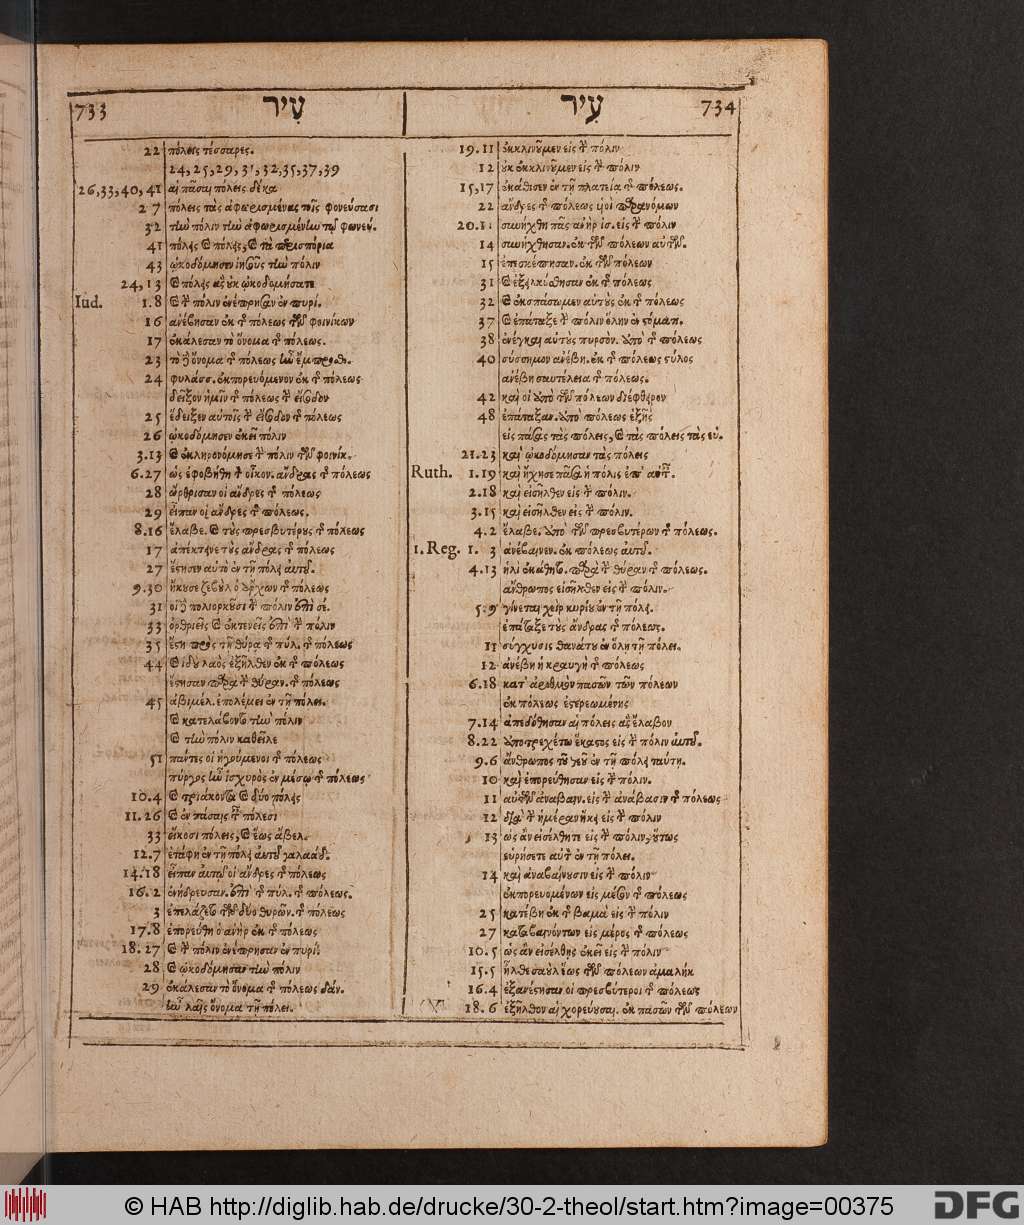 733 עִיר
22 πόλεις τέσσαρες.
24, 25, 29, 31, 32, 35, 37, 39
26, 33, 40, 41 αἱ πᾶσαι πόλεις δέκα
27 πόλεις τὰς ἀφωρισμένας τοῖς φονεύσασι
32 τὴν πόλιν τὴν ἀφωρισμένην τῷ φωνεύ.
41 πόλεις καὶ πόλεις, καὶ τὰ περισπόρια
43 ᾠκοδόμησεν ἰησοῦς τὴν πόλιν
24, 13 καὶ πόλεις ἃς οὐκ ᾠκοδομήσατε
Iud. 1. 8 καὶ τὴν πόλιν ἐνέπρησαν ἐν πυρί.
16 ἀνέβησαν ἐκ τῆς πόλεως τῶν φοινίκων
17 ἐκάλεσαν τὸ ὄνομα τῆς πόλεως.
23 τὸ δὲ ὄνομα τῆς πόλεως ἦν ἔμπροσθ.
24 φυλάσσ. ἐκπορευόμενον ἐκ τῆς πόλεως
δεῖξον ἡμῖν τῆς πόλεως τὴν εἴσοδον
25 ἔδειξεν αὐτοῖς τὴν εἴσοδον τῆς πόλεως
26 ᾠκοδόμησεν ἐκεῖ πόλιν
3. 13 καὶ ἐκληρονόμησε τὴν πόλιν τῶν φοινίκ.
6. 27 ὡς ἐφοβήθη τὸν οἶκον. ἄνδρας τῆς πόλεως
28 ὤρθρισαν οἱ ἄνδρες τῆς πόλεως
29 εἶπαν οἱ ἄνδρες τῆς πόλεως.
8. 16 ἔλαβε. καὶ τοὺς πρεσβυτέρους τῆς πόλεως
17 ἀπέκτεινε τοὺς ἄνδρας τῆς πόλεως
27 ἔστησεν αὐτὸ ἐν τῇ πόλει αὐτοῦ.
9. 30 ἤκουσε ζεβοὺλ ὁ ἄρχων τῆς πόλεως
31 οἵδε πολιορκοῦσι τὴν πόλιν ἐπὶ σέ.
33 ὀρθριεῖς καὶ ἐκτενεῖς ἐπὶ τὴν πόλιν
35 ἔστη πρὸς τῇ θύρᾳ τῆς πύλ. τῆς πόλεως
44 καὶ ἰδοὺ λαὸς ἐξῆλθεν ἐκ τῆς πόλεως
ἔστησαν παρὰ τὴν θύραν. τῆς πόλεως
45 ἀβιμέλ. ἐπολέμει ἐν τῇ πόλει.
καὶ κατελάβοντο τὴν πόλιν
καὶ τὴν πόλιν καθεῖλε
51 πάντες οἱ ἡγούμενοι τῆς πόλεως
πύργος ἦν ἰσχυρὸς ἐν μέσῳ τῆς πόλεως
10. 4 καὶ τριάκοντα καὶ δύο πόλεις
11. 26 καὶ ἐν πάσαις ταῖς πόλεσι
33 εἴκοσι πόλεις, καὶ ἕως ἄβελ.
12. 7 ἐτάφη ἐν τῇ πόλει αὐτοῦ γαλαάδ.
14. 18 εἶπαν αὐτῷ οἱ ἄνδρες τῆς πόλεως
16. 2 ἐνήδρευσαν. ἐπὶ τὴν πύλ. τῆς πόλεως.
3 ἐπελάβετο τῶν δύο θυρῶν. τῆς πόλεως
17. 8 ἐπορεύθη ὁ ἀνὴρ ἐκ τῆς πόλεως
18. 27 καὶ τὴν πόλιν ἐνέπρησαν ἐν πυρί.
28 καὶ ᾠκοδόμησαν τὴν πόλιν
29 ἐκάλεσαν τὸ ὄνομα τῆς πόλεως δάν.
ἦν λαῒς ὄνομα τῇ πόλει.
עִיר 734
19. 11 ἐκκλινοῦμεν εἰς τὴν πόλιν
12 οὐκ ἐκκλινοῦμεν εἰς τὴν πόλιν
15, 17 ἐκάθισεν ἐν τῇ πλατείᾳ τῆς πόλεως.
22 ἄνδρες τῆς πόλεως υἱοὶ παρανόμων
20. 11 συνήχθη πᾶς ἀνὴρ ἰσ. εἰς τὴν πόλιν
14 συνήχθησαν. ἐκ τῶν πόλεων αὐτῶν.
15 ἐπεσκέπησαν. ἐκ τῶν πόλεων
31 καὶ ἐξειλκύσθησαν ἐκ τῆς πόλεως
32 καὶ ἐκσπάσωμεν αὐτοὺς ἐκ τῆς πόλεως
37 καὶ ἐπάταξε τὴν πόλιν ὅλην ἐν στόματι.
38 ἀνέγκαι αὐτοὺς πυρσὸν. ἀπὸ τῆς πόλεως
40 σύσσημον ἀνέβη. ἐκ τῆς πόλεως στύλος
ἀνέβη συντέλεια τῆς πόλεως.
42 καὶ οἱ ἀπὸ τῶν πόλεων διέφθειρον
48 ἐπάταξαν. ἀπὸ πόλεως ἑξῆς
εἰς πάσας τὰς πόλεις, καὶ τὰς πόλεις τὰς εὑ.
21. 23 καὶ ᾠκοδόμησαν τὰς πόλεις
Ruth. 1. 19 καὶ ἤχησε πᾶσα ἡ πόλις ἐπ' αὐταῖς.
2. 18 καὶ εἰσῆλθεν εἰς τὴν πόλιν.
3. 15 καὶ εἰσῆλθεν εἰς τὴν πόλιν.
4. 2 ἔλαβε. ἀπὸ τῶν πρεσβυτέρων τῆς πόλεως.
1. Reg. 1. 3 ἀνέβαινεν. ἐκ πόλεως αὐτοῦ.
4. 13 ἡλὶ ἐκάθητο. παρὰ τὴν θύραν τῆς πόλεως.
ἄνθρωπος εἰσῆλθεν εἰς τὴν πόλιν.
5. 9 γίνεται χεὶρ κυρίου ἐν τῇ πόλει.
ἐπάταξε τοὺς ἄνδρας τῆς πόλεως.
11 σύγχυσις θανάτου ἐν ὅλῃ τῇ πόλει.
12 ἀνέβη ἡ κραυγὴ τῆς πόλεως
6. 18 κατ' ἀριθμὸν πασῶν τῶν πόλεων
ἐκ πόλεως ἐστερεωμένης
7. 14 ἀπεδόθησαν αἱ πόλεις ἃς ἔλαβον
8. 22 ἀποτρεχέτω ἕκαστος εἰς τὴν πόλιν αὐτοῦ.
9. 6 ἄνθρωπος τοῦ θεοῦ ἐν τῇ πόλει ταύτῃ.
10 καὶ ἐπορεύθησαν εἰς τὴν πόλιν.
11 αὐτῶν ἀναβαιν. εἰς τὴν ἀνάβασιν τῆς πόλεως
12 διὰ τὴν ἡμέραν ἥκει εἰς τὴν πόλιν
13 ὡς ἂν εἰσέλθητε εἰς τὴν πόλιν, οὕτως
εὑρήσετε αὐτὸν ἐν τῇ πόλει.
14 καὶ ἀναβαίνουσιν εἰς τὴν πόλιν
ἐκπορευομένων εἰς μέσον τῆς πόλεως
25 κατέβη ἐκ τῆς βαμὰ εἰς τὴν πόλιν
27 καταβαινόντων εἰς μέρος τῆς πόλεως
10. 5 ὡς ἂν εἰσέλθῃς ἐκεῖ εἰς τὴν πόλιν
15. 5 ἦλθε σαοὺλ ἕως τῶν πόλεων ἀμαλήκ
16. 4 ἐξανέστησαν οἱ πρεσβύτεροι τῆς πόλεως
18. 6 ἐξῆλθον αἱ χορεύουσαι. ἐκ πασῶν τῶν πόλεων
© HAB http://diglib.hab.de/drucke/30-2-theol/start.htm?image=00375
DFG